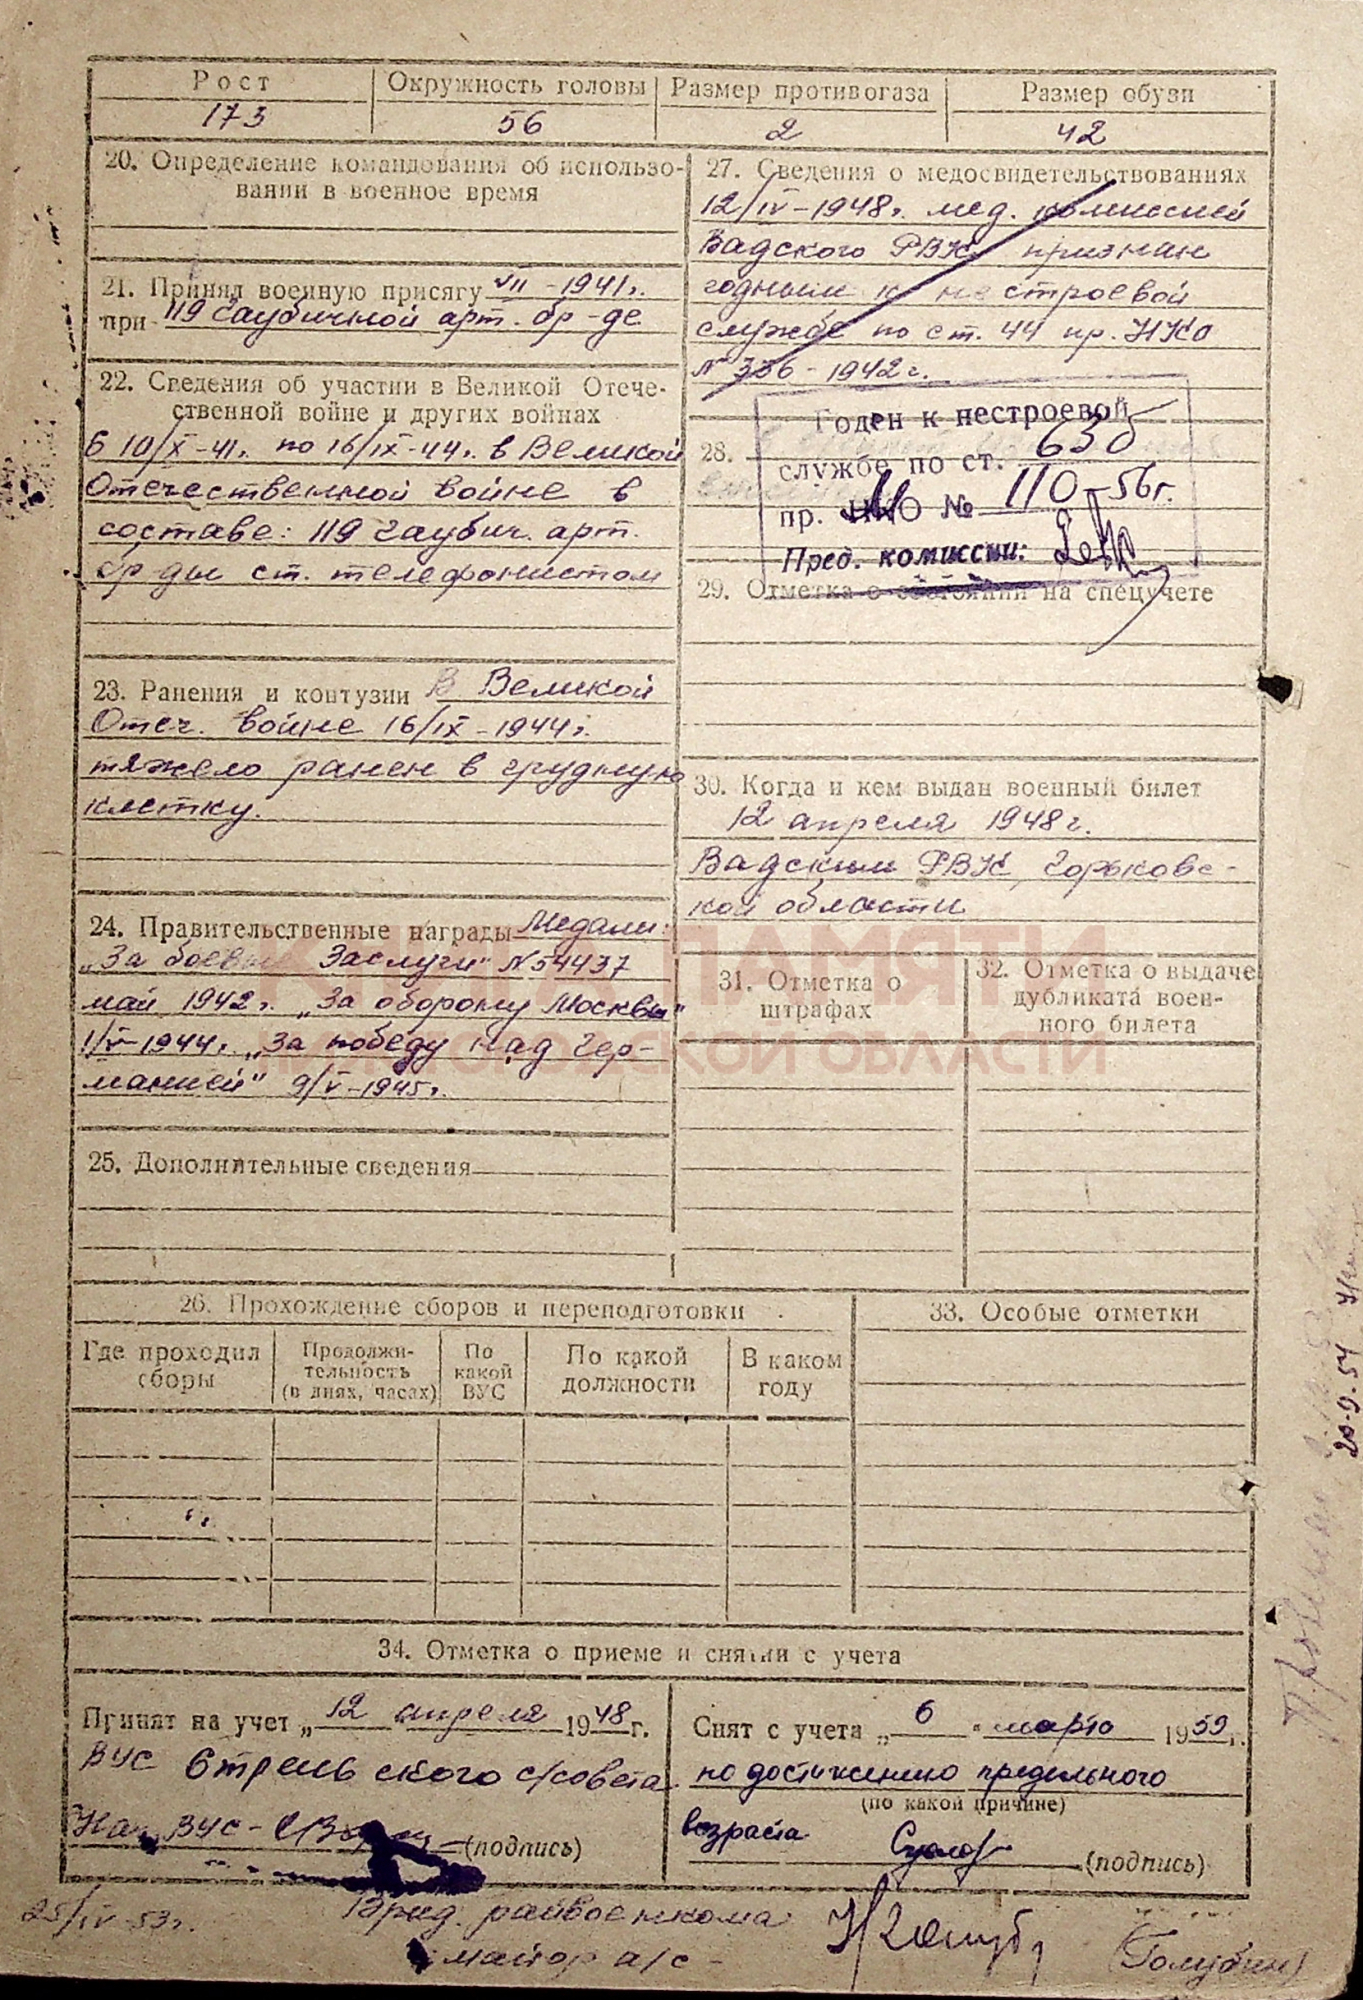 Рост
173
Окружность головы
56
Размер противогаза
2
Размер обуви
42
20. Определение командования об использо-
вании в военное время
21. Принял военную присягу VII-1941г.
при 119 гаубичной арт. бр-де
22. Сведения об участии в Великой Отече-
ственной войне и других войнах
С 10/X-41г. по 16/IX-44г. в Великой
Отечественной войне в
составе: 119 гаубич. арт.
бр-ды ст. телефонистом
23. Ранения и контузии В Великой
Отеч. войне 16/IX-1944г.
тяжело ранен в грудную
клетку.
24. Правительственные награды Медали:
„За боевые Заслуги" N 54437
май 1942г. „За оборону Москвы"
1/V-1944г. „За победу над Гер-
манией" 9/V-1945г.
25. Дополнительные сведения
27. Сведения о медосвидетельствованиях
12/IV-1948г. мед. комиссией
Вадского РВК признан
годным к нестроевой
службе по ст. 44 пр. НКО
N 336-1942г.
28.
Годен к нестроевой
службе по ст. 63б
пр. О № 110-56г.
Пред. комиссии:
29. Отметка о состоянии на спецучете
30. Когда и кем выдан военный билет
12 апреля 1948г.
Вадским РВК, Горьковс-
кой области
31. Отметка о
штрафах
32. Отметка о выдаче
дубликата воен-
ного билета
КНИГА ПАМЯТИ
НИЖЕГОРОДСКОЙ ОБЛАСТИ
26. Прохождение сборов и переподготовки
Где проходил
сборы
Продолжи-
тельность
(в днях, часах)
По
какой
ВУС
По какой
должности
В каком
году
33. Особые отметки
34. Отметка о приеме и снятии с учета
Принят на учет „12" апреля 1948г.
ВУС Стрельского с/совета
Нач. ВУС - (подпись)
Снят с учета „6" марта 1959г.
по достижению предельного
(по какой причине)
возраста (подпись)
25/IV-53г.
Врид. райвоенкома
майор а/с -
(Голубин)
20-9.54